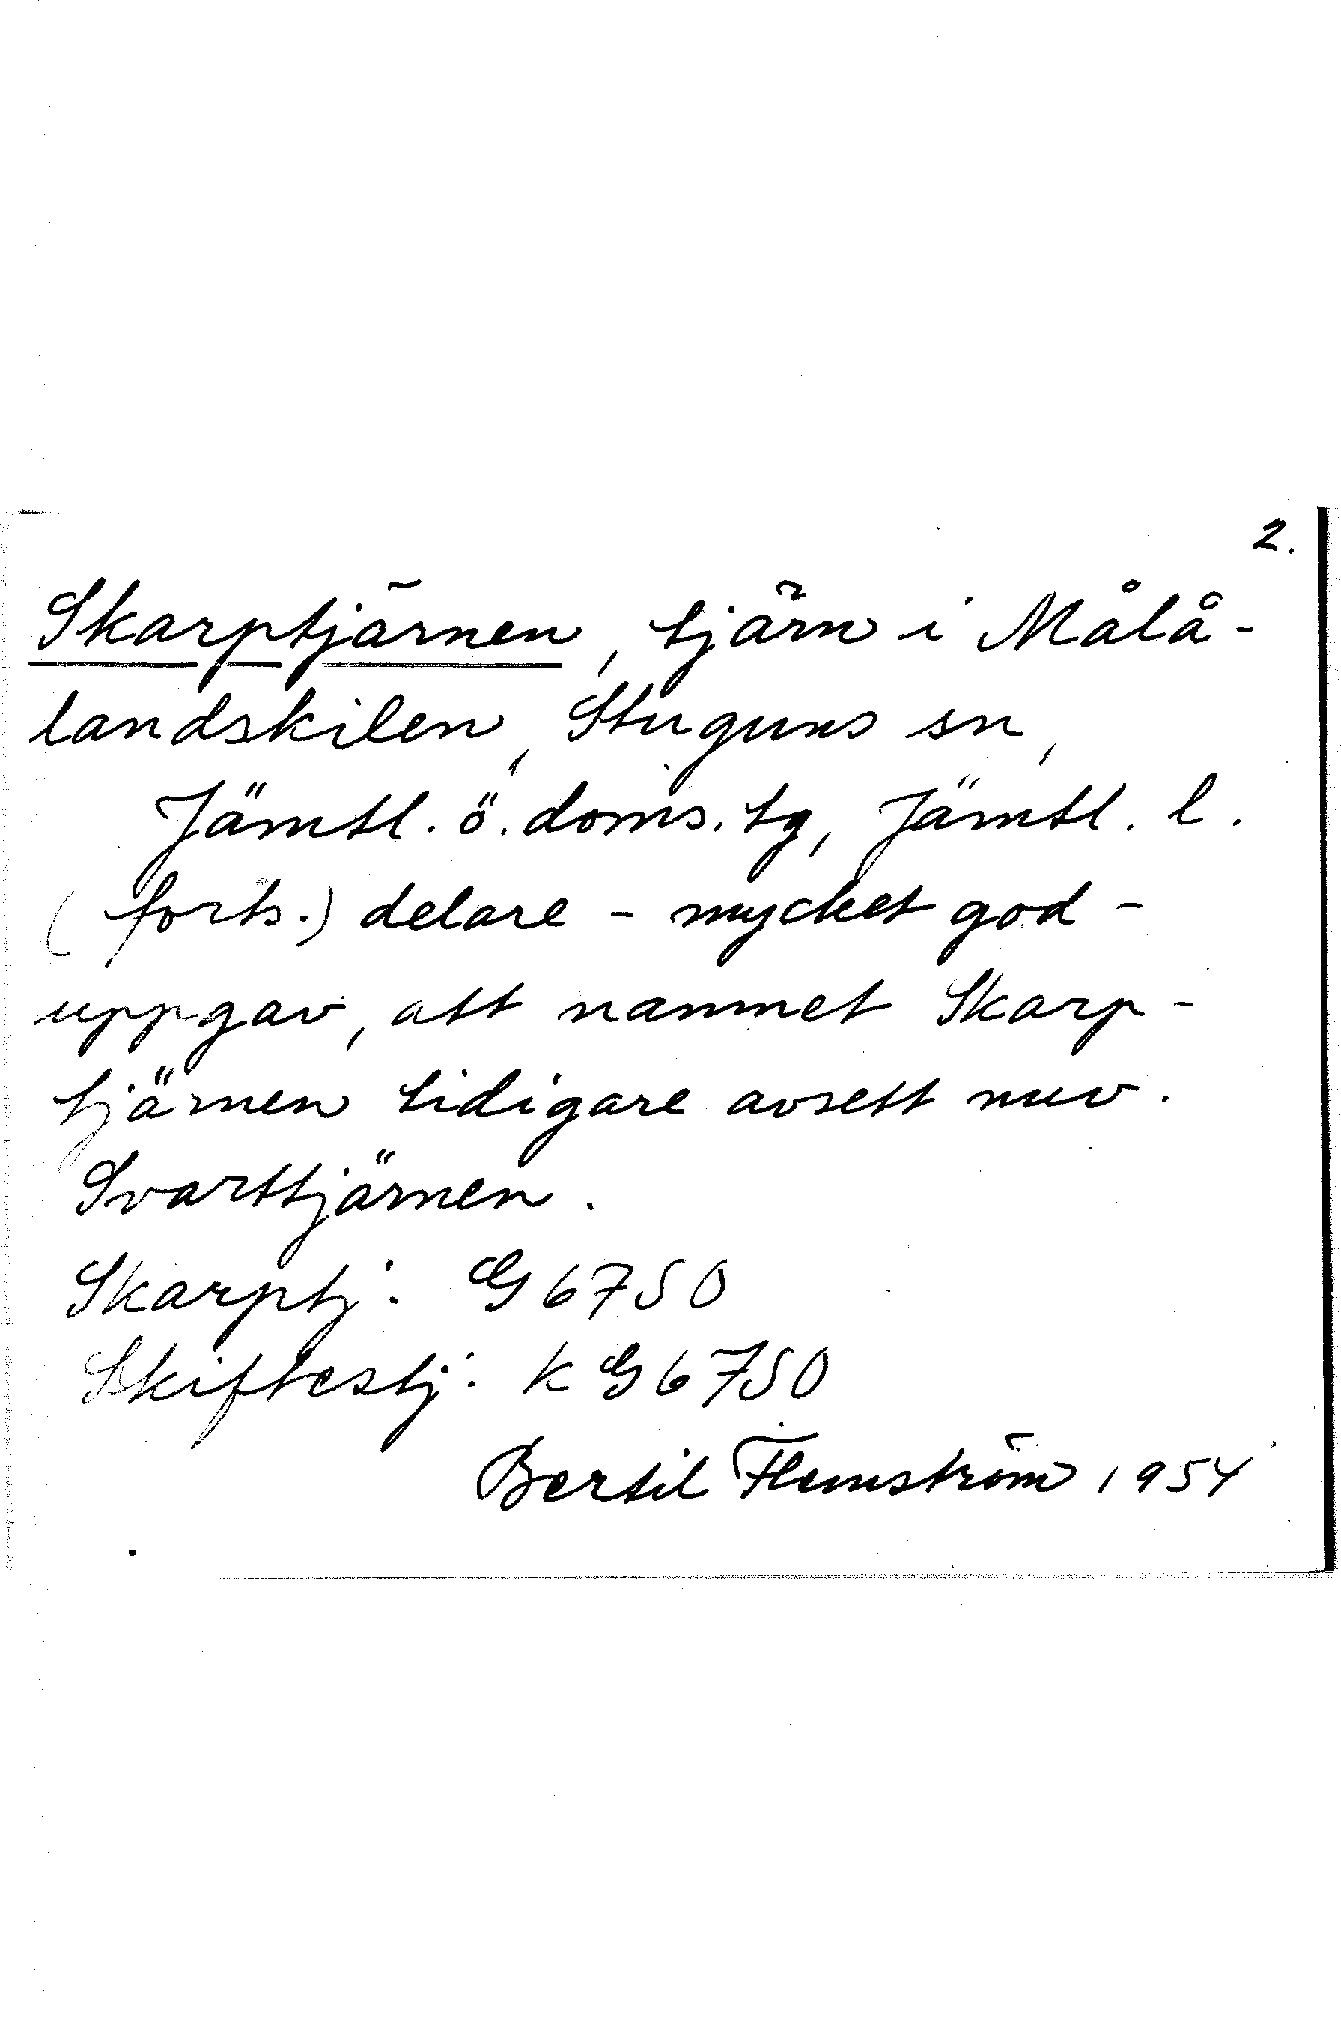 2.
Skarptjärnen, tjärn i Målå-
landskilen, Stuguns sn,
Jämtl. ö. doms. tg, Jämtl. l.
(forts.) delare - mycket god -
uppgav, att namnet Skarp-
tjärnen tidigare avsett nuv.
Svarttjärnen.
Skarptj: G6750
Skiftestj: k G6750
Bertil Flemström 1954